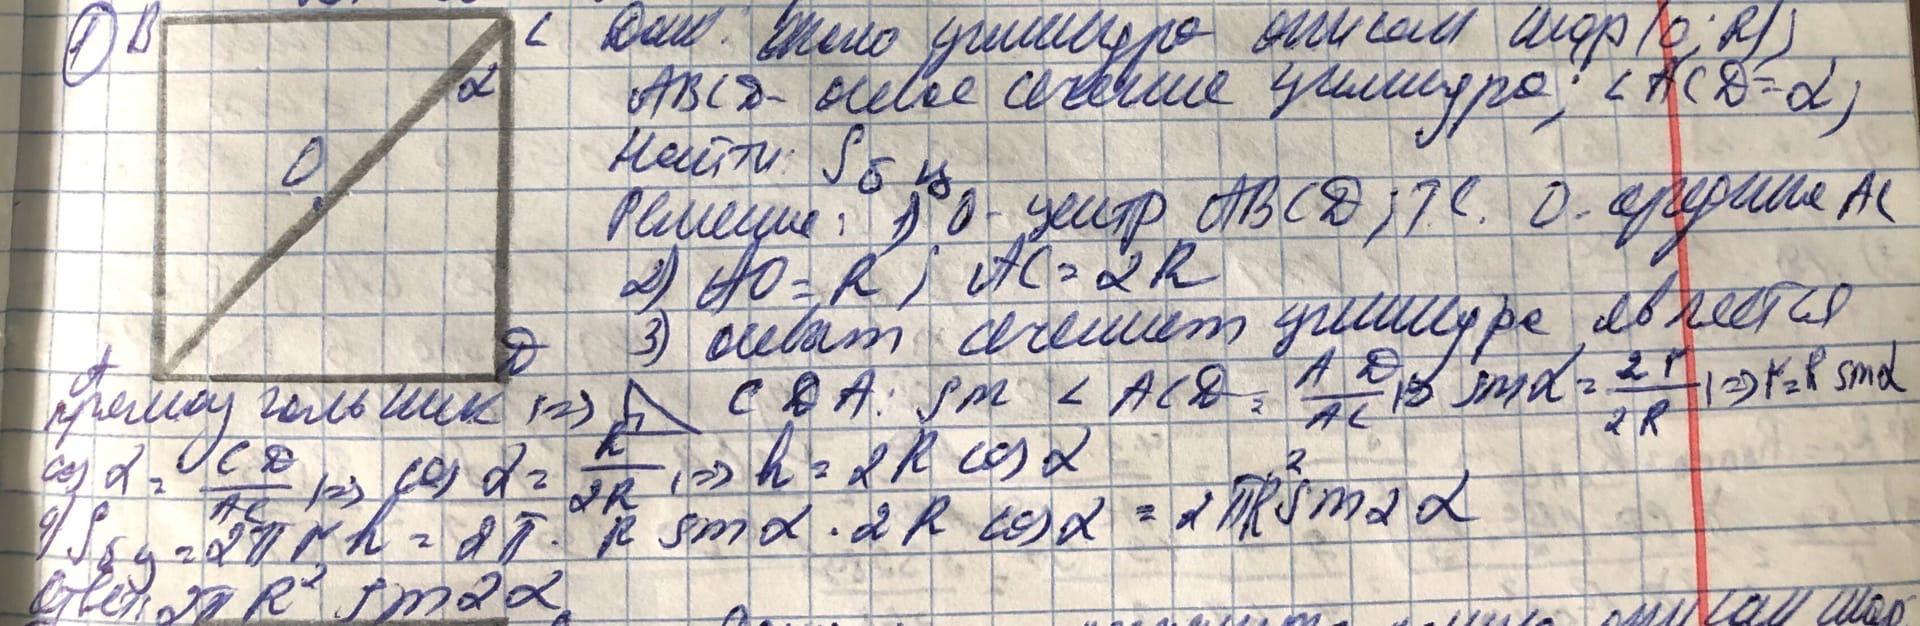 1 B C Дано: Около цилиндра описан шар (O; R);
α ABCD - осевое сечение цилиндра; ∠ACD = α;
Найти: Sб ц
O Решение: 1) O - центр ABCD; т.е. O - середина AC
2) AO = R; AC = 2R
D 3) осевым сечением цилиндра является
A
прямоугольник, => △ CDA: sin ∠ ACD = AD/AC, => sin α = 2r/2R, => r = R sin α
cos α = CD/AC, => cos α = h/2R, => h = 2R cos α
4) Sб ц = 2πrh = 2π · R sin α · 2R cos α = 2πR² sin 2α
Ответ: 2πR² sin 2α
описан шар